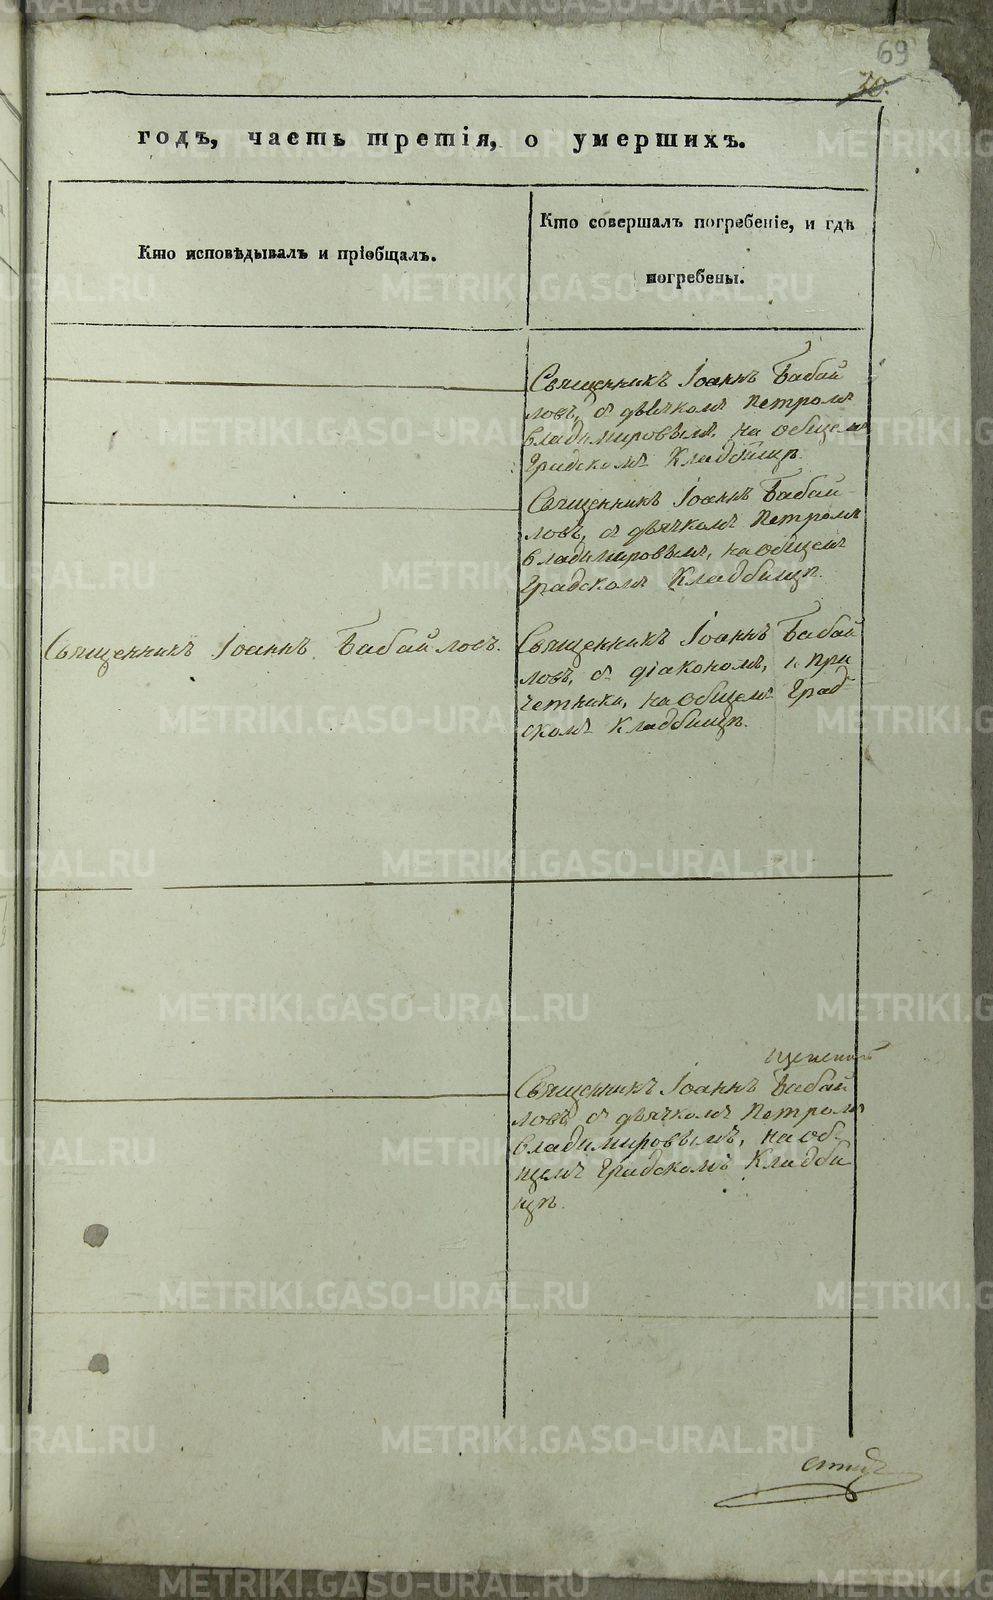 69
30.
годъ, часть третія, о умершихъ.
Кто исповѣдывалъ и пріобщалъ.
Кто совершалъ погребеніе, и гдѣ
погребены.
Священникъ Іоаннъ Бабай
ловъ, съ дьячкомъ Петромъ
Владимировымъ, на общемъ
Градскомъ Кладбищѣ.
Священникъ Іоаннъ Бабай
ловъ, съ дьячкомъ Петромъ
Владимировымъ, на общемъ
Градскомъ Кладбищѣ.
Священникъ Іоаннъ Бабайловъ.
Священникъ Іоаннъ Бабай
ловъ, съ діакономъ, и при
четники, на общемъ Град
скомъ Кладбищѣ.
Священникъ Іоаннъ Бабай
ловъ съ дьячкомъ Петромъ
Владимировымъ, на об-
щемъ Градскомъ Кладби
щѣ.
METRIKI.GASO-URAL.RU